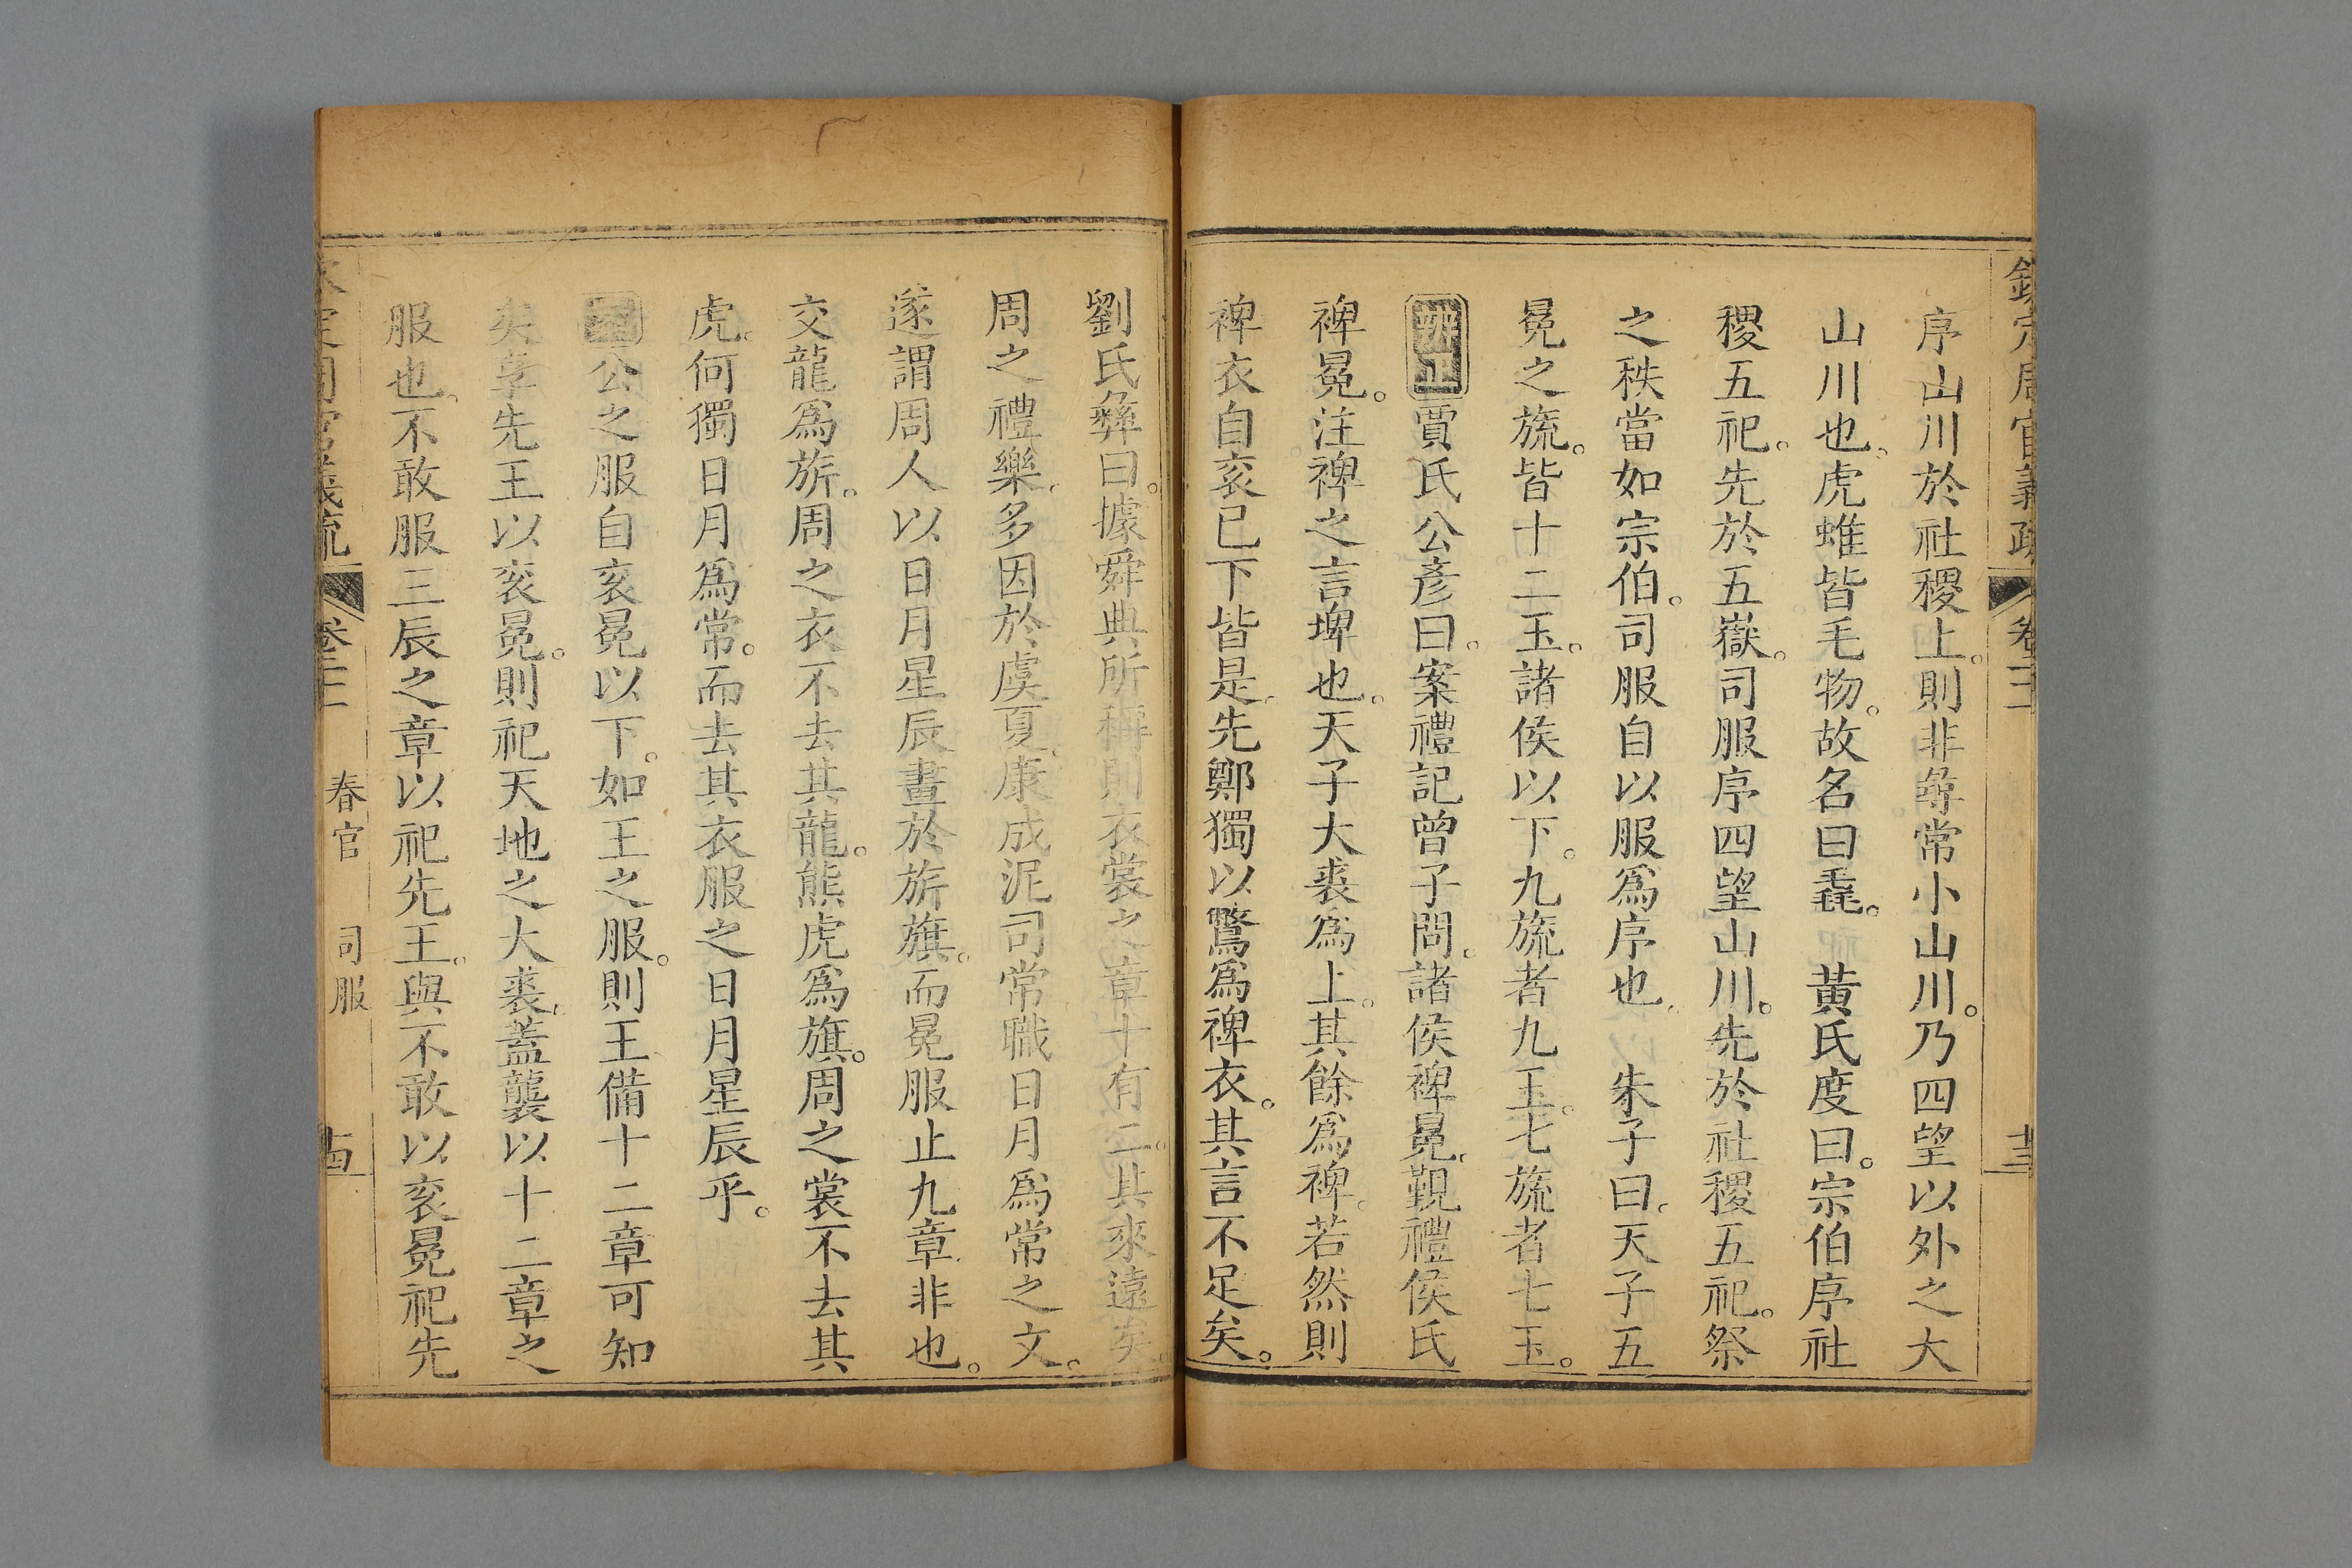 欽定周官義疏 卷二十一 十三
序山川於社稷上。則非尋常小山川。乃四望以外之大
山川也。虎蜼皆毛物。故名曰毳。 黃氏度曰。宗伯序社
稷五祀。先於五嶽。司服序四望山川。先於社稷五祀。祭
之秩當如宗伯。司服自以服為序也。 朱子曰。天子五
冕之旒。皆十二玉。諸侯以下。九旒者九玉。七旒者七玉。
辨正賈氏公彥曰。案禮記曾子問。諸侯裨冕。覲禮侯氏
裨冕。注裨之言埤也。天子大裘為上。其餘為裨。若然則
裨衣自衮已下皆是。先鄭獨以鷩為裨衣。其言不足矣。
劉氏彝曰。據舜典所稱則衣裳之章十有二。其來遠矣。
周之禮樂。多因於虞夏。康成泥司常職日月為常之文。
遂謂周人以日月星辰畫於旂旗。而冕服止九章非也。
交龍為旂。周之衣不去其龍。熊虎為旗。周之裳不去其
虎。何獨日月為常。而去其衣服之日月星辰乎。
公之服自衮冕以下。如王之服。則王備十二章可知
矣。享先王以衮冕。則祀天地之大裘。蓋襲以十二章之
服也。不敢服三辰之章以祀先王。與不敢以衮冕祀先
定周官義疏 卷 春官 司服 十四